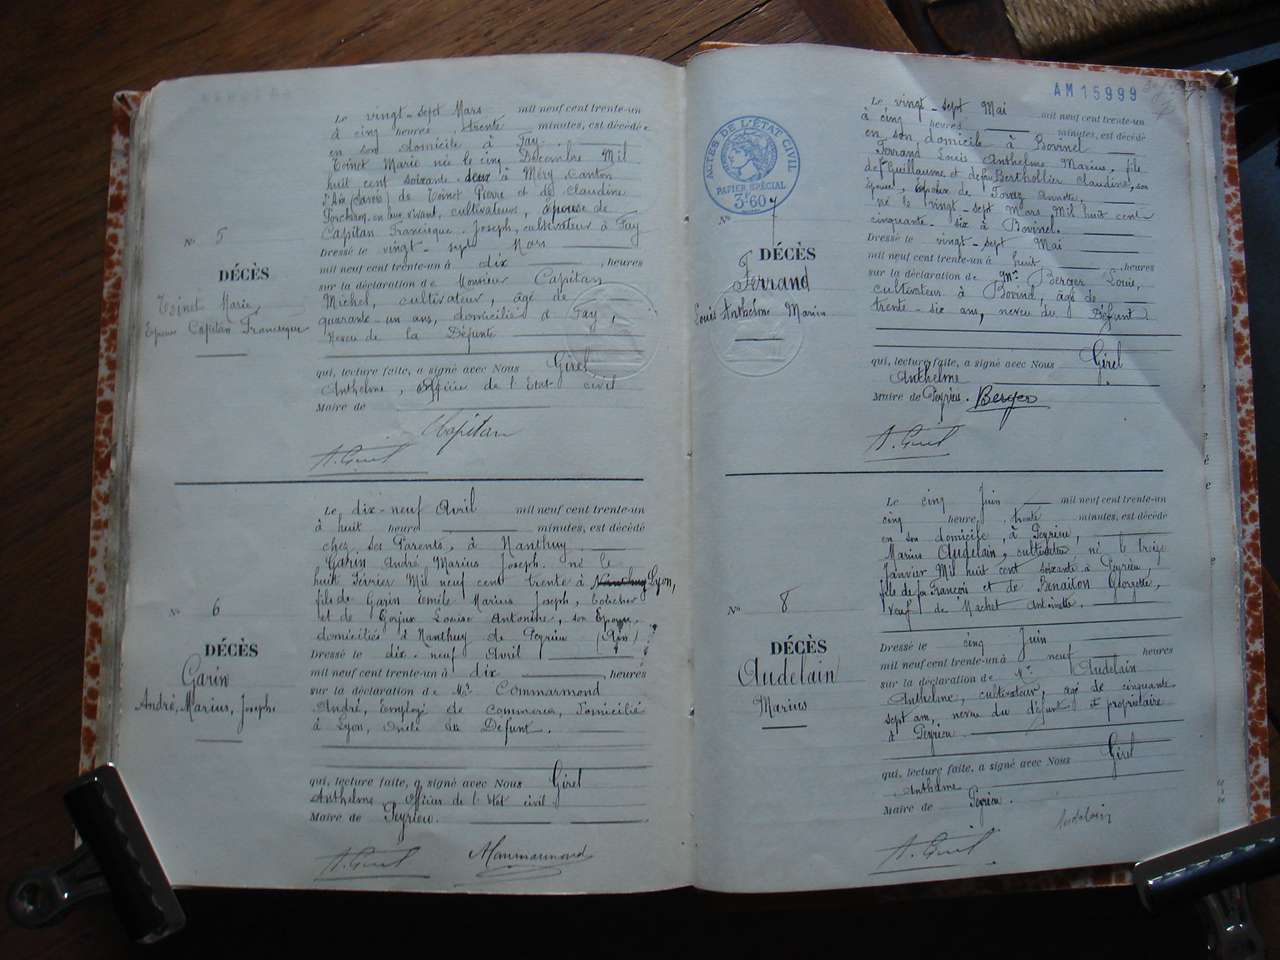 Le vingt-sept Mars mil neuf cent trente-un
à cinq heures trente minutes, est décédée
en son domicile à Fay.
Toinet Marie née le cinq Décembre Mil
huit cent soixante-deux à Méry Canton
d'Aix (Savoie) de Toinet Pierre et de Claudine
en leur vivant, cultivateurs, épouse de
Capitan Francisque Joseph, cultivateur à Fay
Dressé le vingt-sept Mars
mil neuf cent trente-un à dix heures
sur la déclaration de Monsieur Capitan
Michel, cultivateur, âgé de
quarante-un ans, domicilié à Fay,
Neveu de la Défunte
qui, lecture faite, a signé avec Nous Girel
Anthelme, Officier de l'Etat civil
Maire de
Capitan
A. Girel
N° 5
DÉCÈS
Toinet Marie
Epouse Capitan Francisque
Le dix-neuf Avril mil neuf cent trente-un
à huit heure minutes, est décédé
chez ses Parents, à Nanthuy
Garin André Marius Joseph. né le
huit Février Mil neuf cent trente à Nanthuy Lyon,
fils de Garin Marius Joseph,
et de Gorjux Louise Antonine, son Epouse.
domiciliés à Nanthuy de Peyrieu (Ain)
Dressé le dix-neuf Avril
mil neuf cent trente-un à dix heures
sur la déclaration de Mr Commarmond
André, Employé de commerce, Domicilié
à Lyon, oncle du Défunt.
qui, lecture faite, a signé avec Nous Girel
Anthelme Officier de l'Etat civil
Maire de Peyrieu.
A. Girel
N° 6
DÉCÈS
Garin
André, Marius, Joseph
AM 15999
ACTES DE L'ÉTAT CIVIL
PAPIER SPÉCIAL
3F60
Le vingt-sept Mai mil neuf cent trente-un
à cinq heures minutes, est décédé
en son domicile à Bovinel
Ferrand Louis Anthelme Marius, fils
de Guillaume et de Berthollier Claudine, son
Epouse, époux de Annette
né le vingt-sept Mars Mil huit cent
cinquante-six à Bovinel.
Dressé le vingt-sept Mai
mil neuf cent trente-un à huit heures
sur la déclaration de Mr Berger Louis,
cultivateur à Bovinel, âgé de
trente-six ans, neveu du Défunt
qui, lecture faite, a signé avec Nous Girel
Anthelme
Maire de Peyrieu. Berger
A. Girel
N° 7
DÉCÈS
Ferrand
Louis Anthelme Marius
Le cinq Juin mil neuf cent trente-un
cinq heure, trente minutes, est décédé
en son domicile, à Peyrieu,
Marius Audelain, cultivateur né le treize
Janvier Mil huit cent soixante à Peyrieu
fils de feu François et de Benaiton Glorzette,
veuf de Machet Antoinette.
Dressé le cinq Juin
mil neuf cent trente-un à neuf heures
sur la déclaration de Mr. Audelain
Anthelme, cultivateur, âgé de cinquante
sept ans, neveu du défunt et propriétaire
à Peyrieu
qui, lecture faite, a signé avec Nous Girel
Anthelme
Maire de Peyrieu.
Audelain
A. Girel
N° 8
DÉCÈS
Audelain
Marius